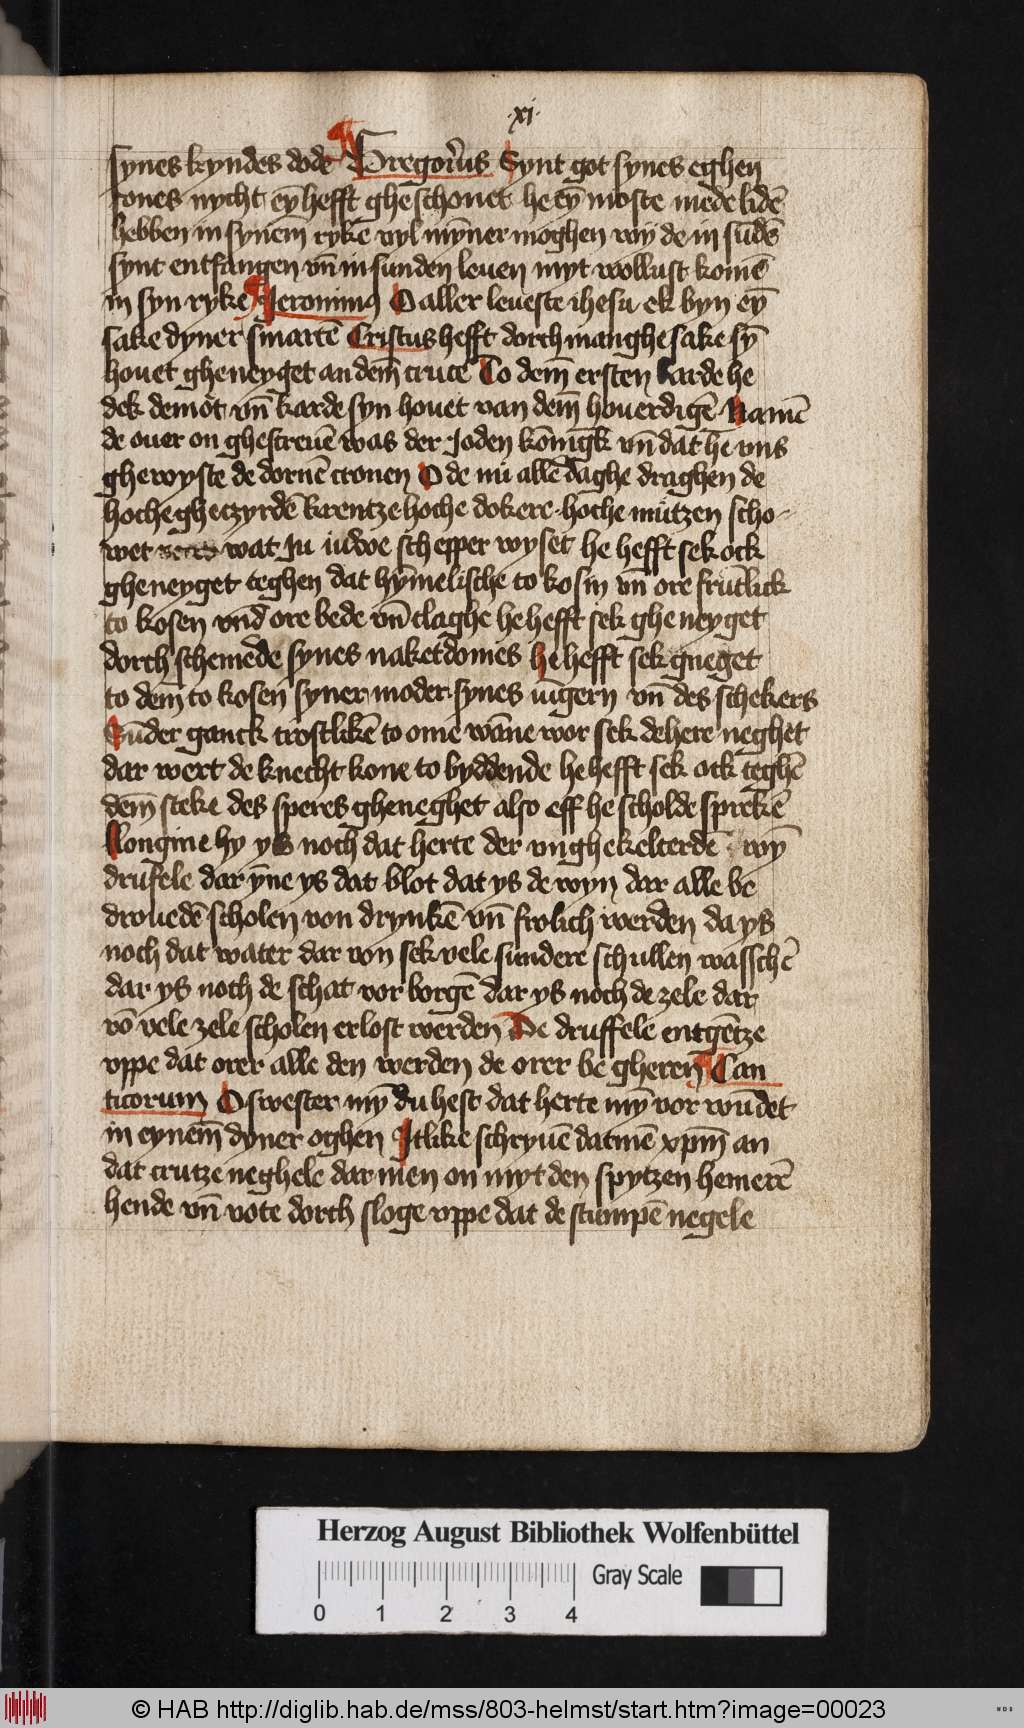 ·xj·
synes kyndes dode Gregori9us Synt got synes eghen
sones nycht ey̅ hefft ghe schonet he ey̅ moste mede lide̅
hebben in syne̅m ryke vyl my̅ner moghen wij de in su̅de̅
synt entfangen vn̅ in sunden leuen myt wollust kome̅
in syn ryke Jeronimꝰ O aller leueste ihesu ek byn ey̅
sake dyner smarte̅ Cristus hefft dorch manghe sake sy̅
houet gheneyget an dem̅ cruce To dem̅ ersten karde he
dek demot vn̅ karde syn houet van dem̅ houerdige̅ Name̅
de ouer on ghescreue̅ was der Joden ko̅nigk vn̅ dat he vns
ghewyste de dorne̅ cronen O de nu alle̅ daghe draghen de
hoche gheczyrde̅ krentze hoche dokere hoche mützen scho-
wet wat Ju iuwe schepper wyset he hefft sek ock
gheneyget teghen dat hy̅melische to kosin vn̅ ore fru̅tlick
to kosen vnd ore bede vn̅ claghe he hefft sek gheneyget
dorch schemede synes naketdomes he hefft sek gneget
to dem̅ to kosen syner moder synes iu̅gern vn̅ des schekers
Su̅der ganck trostlike̅ to ome wa̅ne wor sek de here neghet
dar wert de knecht kone to byddende he hefft sek ock teghe̅
dem̅ steke des speres gheneghet also eff he scholde spreke̅
Longine hy ys noch dat herte der vnghekelterde̅ wy̅
drufele dar y̅ne ys dat blot dat ys de wyn dar alle be
drouede̅ scholen von drynke̅ vn̅ frolich werden da ys
noch dat water dar von sek vele sundere schullen wassche̅
dar ys noch de schat vorborge̅ dar ys noch de zele dar
vo̅ vele zele scholen erlost werden De druffele entge̅tze
vppe dat orer alle den werden de orer be gheren̅ Can
ticorum O swester my̅ du hest dat herte my̅ vor wu̅det
in eynem̅ dyner oghen Itlike schryue̅ datme̅ xpm̅ an
dat crutze neghele dar men on myt den spytzen hemere̅
hende vn̅ vote dorch sloge vppe dat de stumpe̅ negele
Herzog August Bibliothek Wolfenbüttel
Gray Scale
0 1 2 3 4
© HAB http://diglib.hab.de/mss/803-helmst/start.htm?image=00023